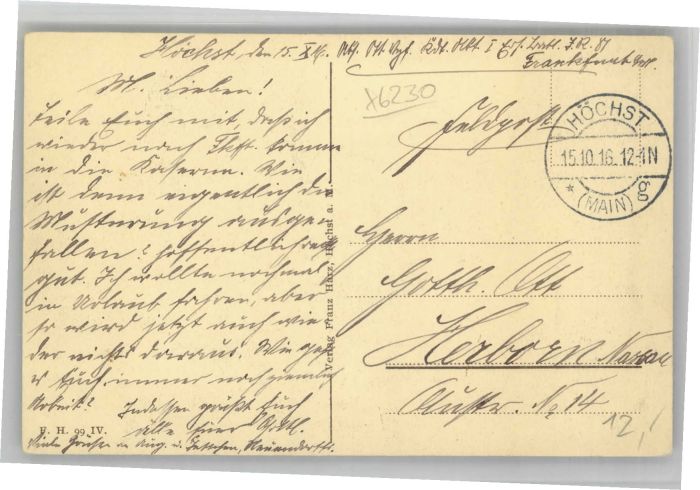 Höchst, den 15. X 16.
M. Lieben!
Teile Euch mit, daß ich
wieder nach Fkft. komme
in die Kaserne. Wie
ist denn eigentlich die
Musterung ausge-
fallen? Hoffentlich recht
gut. Ich wollte nochmal
in Urlaub fahren, aber
so wird jetzt auch wie-
der nichts daraus. Wie geht
es Euch, immer noch ziemlich
Arbeit? Indessen grüßt Euch
alle Euer
Viele Grüße an Aug. u.
F. H. 99 IV.
Verlag Franz Harz, Höchst a. M.
Ott Kdt. I Ers. Batl. I.R. 81
Frankfurt
X6230
Feldpost
HÖCHST
15.10.16. 12-1N
* (MAIN) g
Herrn
Gotth. Ott
Herborn Nassau
No 14
12,-